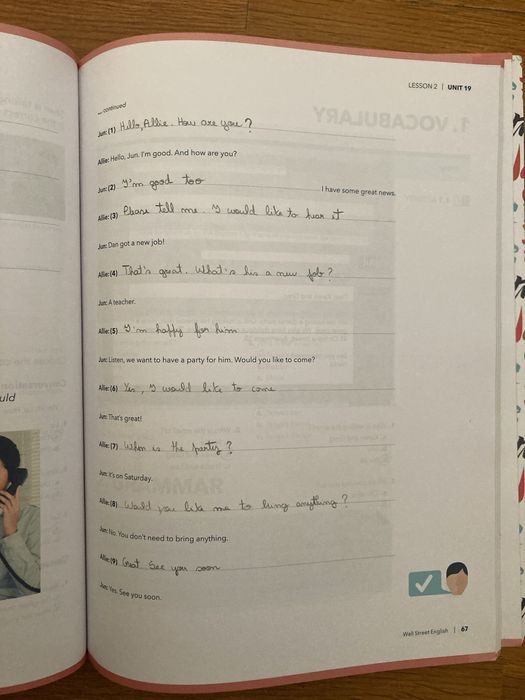 LESSON 2 | UNIT 19
... continued
Jun: (1) Hello, Allie. How are you?
Allie: Hello, Jun. I'm good. And how are you?
Jun: (2) I'm good too I have some great news.
Allie: (3) Please tell me. I would like to hear it
Jun: Dan got a new job!
Allie: (4) That's great. What's his a new job?
Jun: A teacher.
Allie: (5) I'm happy for him
Jun: Listen, we want to have a party for him. Would you like to come?
Allie: (6) Yes, I would like to come
Jun: That's great!
Allie: (7) When is the party?
Jun: It's on Saturday.
Allie: (8) Would you like me to bring anything?
Jun: No. You don't need to bring anything.
Allie: (9) Great See you soon
Jun: Yes. See you soon.
Wall Street English | 67